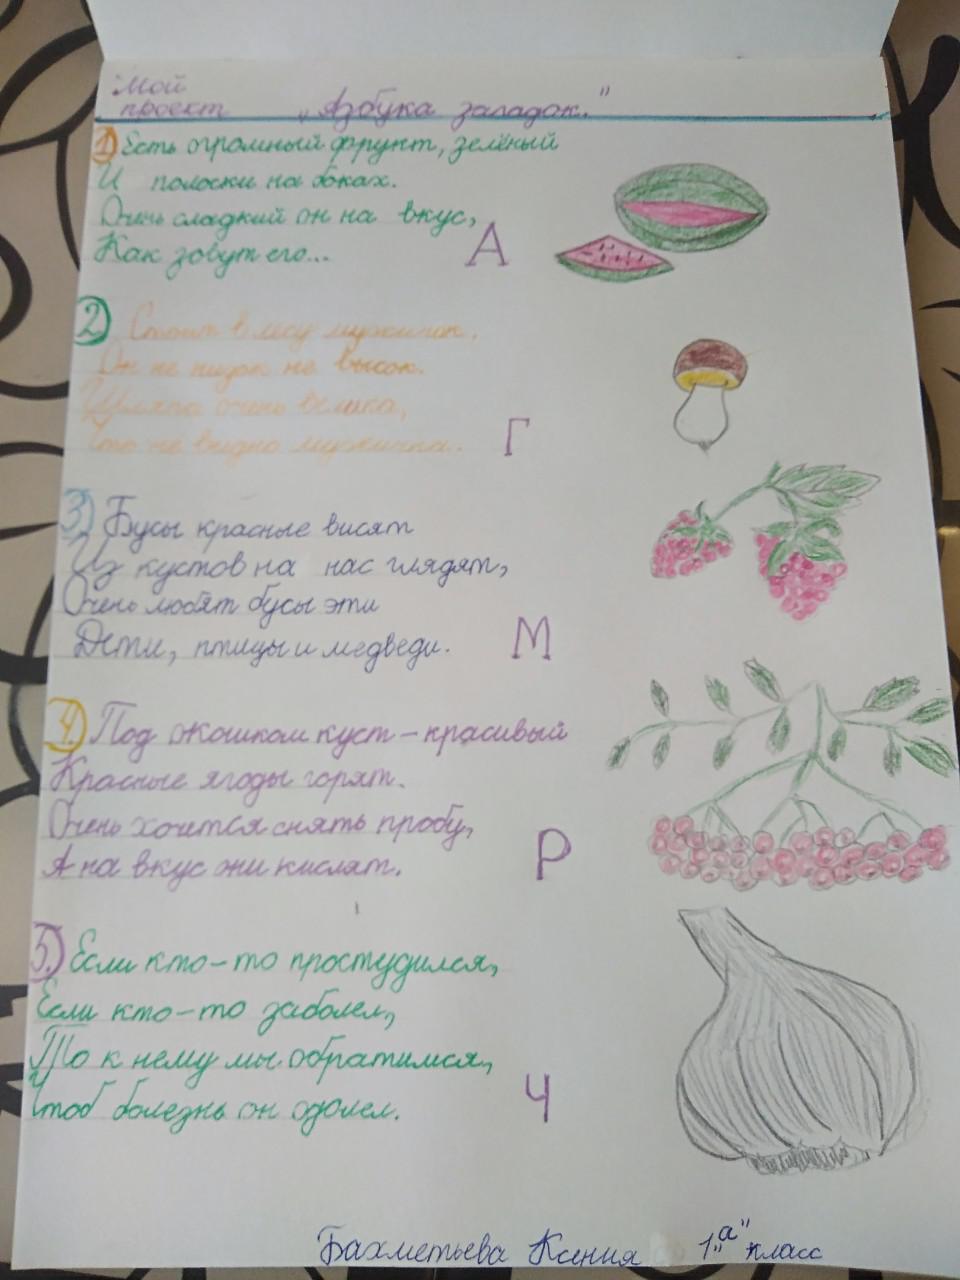 Мой
проект „Азбука заладок."
1 Есть огромный фрукт, зелёный
И полоски на боках.
Очень сладкий он на вкус,
Как зовут его...
А
2 Стоит в лесу мужичок.
Он не низок не высок.
Шляпа очень велика,
Что не видно мужичка.
Г
3 Бусы красные висят
Из кустов на нас глядят,
Очень любят бусы эти
Дети, птицы и медведи.
М
4. Под окошком куст - красивый
Красные ягоды горят.
Очень хочется снять пробу,
А на вкус они кислят.
Р
5. Если кто-то простудился,
Если кто-то заболел,
То к нему мы обратимся,
Чтоб болезнь он одолел.
Ч
Бахметьева Ксения 1„а" класс